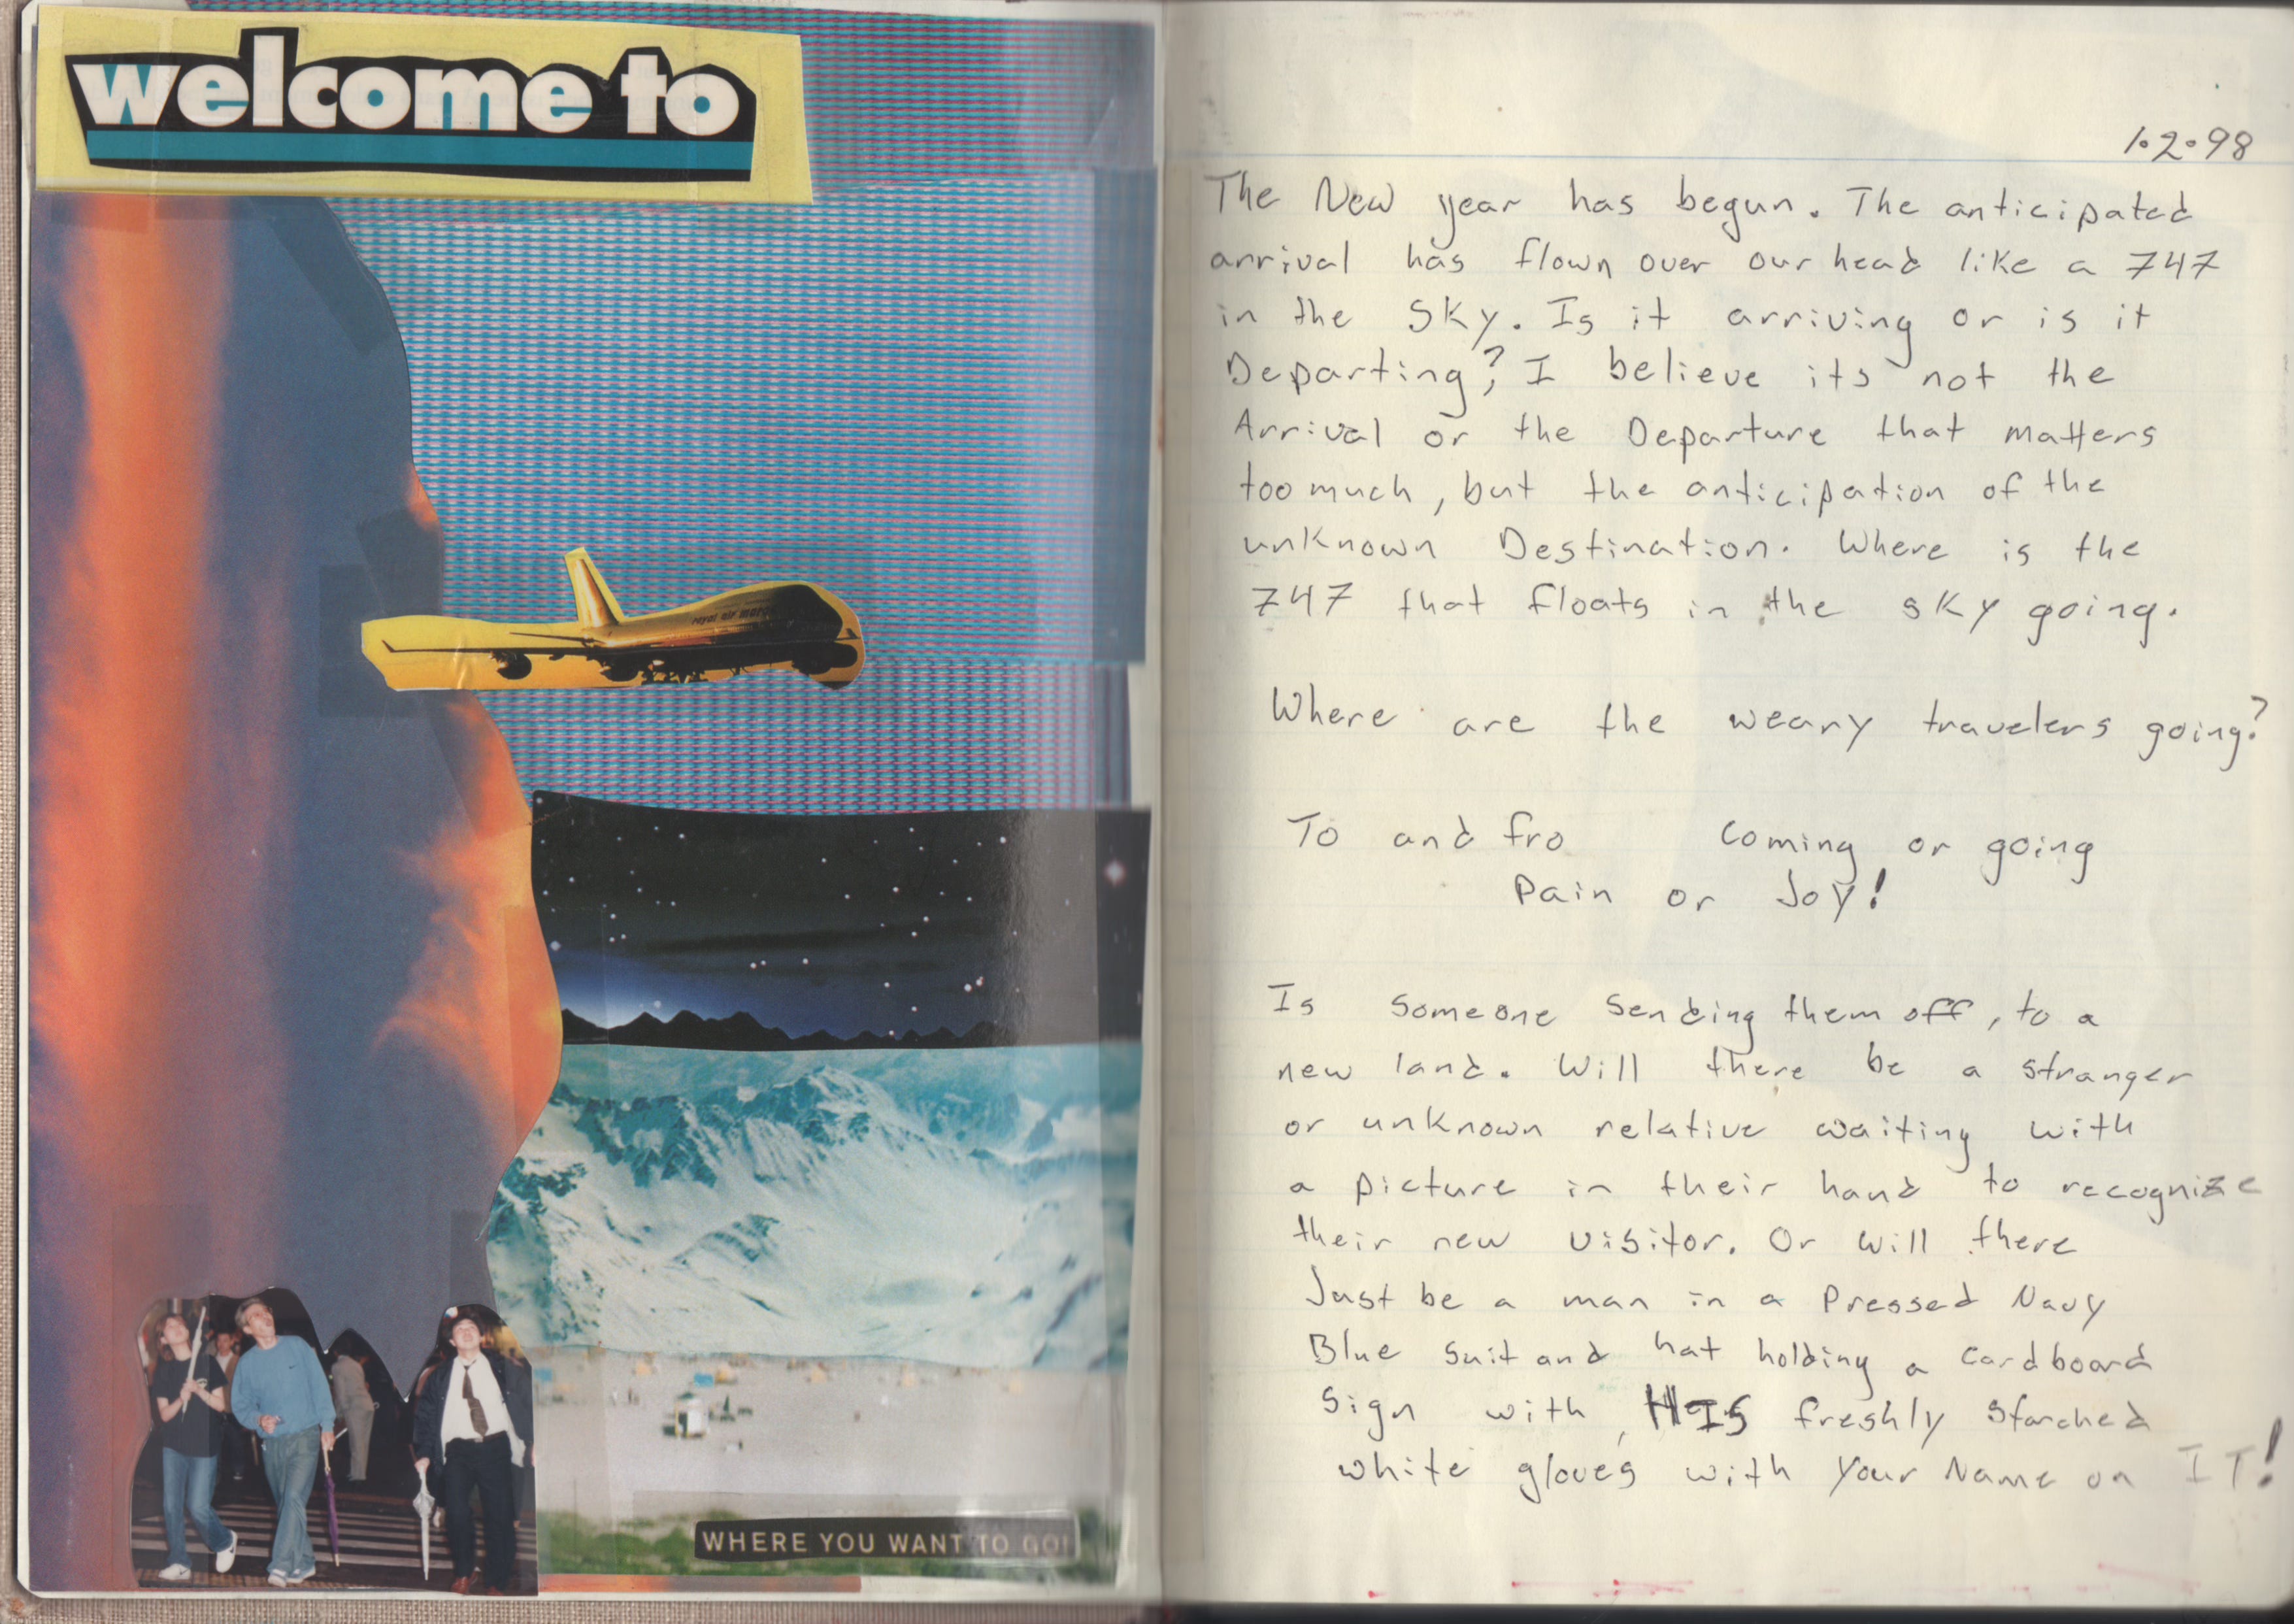 welcome to
royal air maroc
WHERE YOU WANT TO GO!
1.2.98
The New year has begun. The anticipated
arrival has flown over our head like a 747
in the sky. Is it arriving or is it
Departing? I believe its not the
Arrival or the Departure that matters
too much, but the anticipation of the
unknown Destination. Where is the
747 that floats in the sky going.
Where are the weary travelers going?
To and fro coming or going
Pain or Joy!
Is someone sending them off, to a
new land. Will there be a stranger
or unknown relative waiting with
a picture in their hand to recognize
their new visitor. Or will there
Just be a man in a Pressed Navy
Blue suit and hat holding a cardboard
sign with, HIS freshly starched
white gloves with Your Name on IT!